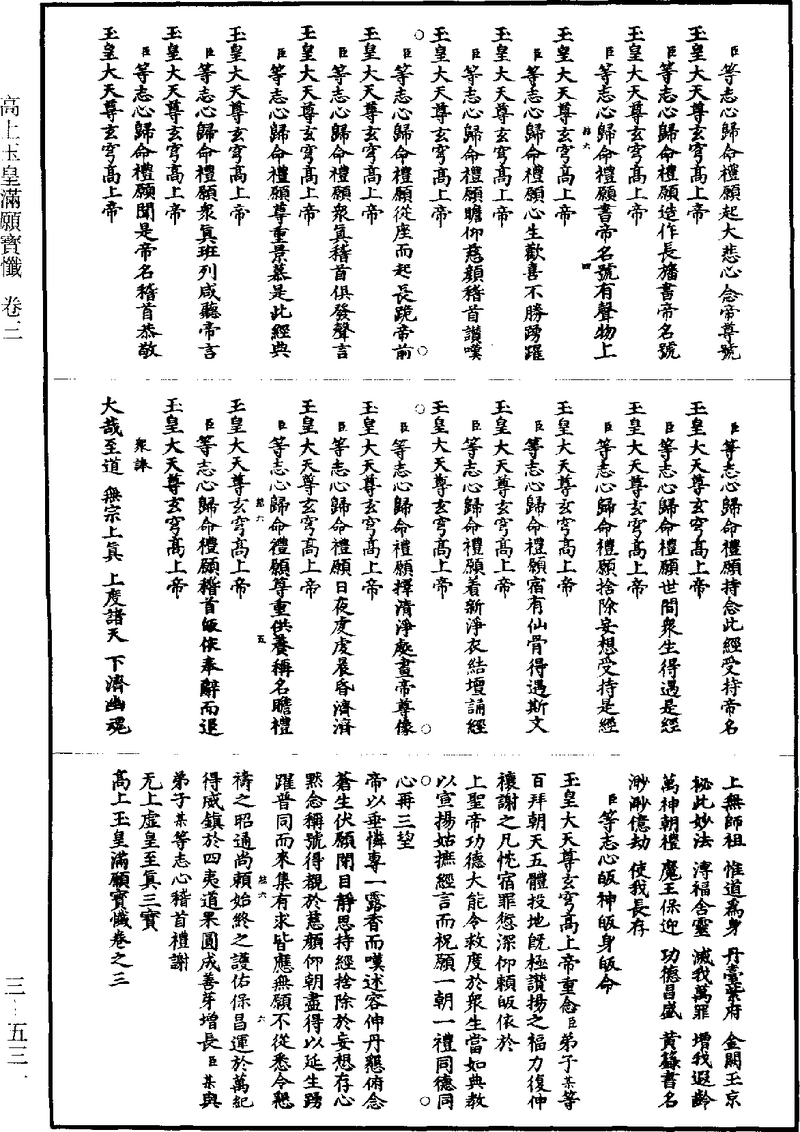 高上玉皇滿願寶懺 卷三
三—五三一
臣等志心歸命禮願起大悲心念帝尊號
玉皇大天尊玄穹高上帝
臣等志心歸命禮願造作長旛書帝名號
玉皇大天尊玄穹高上帝
臣等志心歸命禮願書帝名號有聲物上
玉皇大天尊玄穹高上帝
臣等志心歸命禮願心生歡喜不勝踴躍
玉皇大天尊玄穹高上帝
臣等志心歸命禮願瞻仰慈顏稽首讚嘆
玉皇大天尊玄穹高上帝
臣等志心歸命禮願從座而起長跪帝前
玉皇大天尊玄穹高上帝
臣等志心歸命禮願衆真稽首俱發聲言
玉皇大天尊玄穹高上帝
臣等志心歸命禮願尊重景慕是此經典
玉皇大天尊玄穹高上帝
臣等志心歸命禮願衆真班列咸聽帝言
玉皇大天尊玄穹高上帝
臣等志心歸命禮願聞是帝名稽首恭敬
玉皇大天尊玄穹高上帝
臣等志心歸命禮願持念此經受持帝名
玉皇大天尊玄穹高上帝
臣等志心歸命禮願世間衆生得遇是經
玉皇大天尊玄穹高上帝
臣等志心歸命禮願捨除妄想受持是經
玉皇大天尊玄穹高上帝
臣等志心歸命禮願宿有仙骨得遇斯文
玉皇大天尊玄穹高上帝
臣等志心歸命禮願着新淨衣結壇誦經
玉皇大天尊玄穹高上帝
臣等志心歸命禮願擇清淨處畫帝尊像
玉皇大天尊玄穹高上帝
臣等志心歸命禮願日夜虔虔晨昏濟濟
玉皇大天尊玄穹高上帝
臣等志心歸命禮願尊重供養稱名瞻禮
玉皇大天尊玄穹高上帝
臣等志心歸命禮願稽首皈依奉辭而退
玉皇大天尊玄穹高上帝
衆誦
大哉至道 無宗上真 上度諸天 下濟幽魂
上無師祖 惟道爲身 丹臺紫府 金闕玉京
祕此妙法 溥福含靈 滅我萬罪 增我遐齡
萬神朝禮 魔王保迎 功德昌盛 黃籙書名
渺渺億劫 使我長存
臣等志心皈神皈身皈命
玉皇大天尊玄穹高上帝重念臣弟子某等
百拜朝天五體投地旣極讚揚之福力復伸
禳謝之凡忱宿罪愆潔仰賴皈依於
上聖帝功德大能令救度於衆生當如典教
以宣揚姑撫經言而祝願一朝一禮同德同
心再三望
帝以垂憐專一露香而嘆述容伸丹懇俯念
蒼生伏願閉目靜思持經捨除於妄想存心
默念稱號得覩於慈顏仰朝盡得以延生踴
躍普同而來集有求皆應無願不從悉令懇
禱之昭通尚賴始終之護佑保昌運於萬紀
得咸鎮於四夷道果圓成善芽增長臣某與
弟子某等志心稽首禮謝
无上虛皇至真三寶
高上玉皇滿願寶懺卷之三